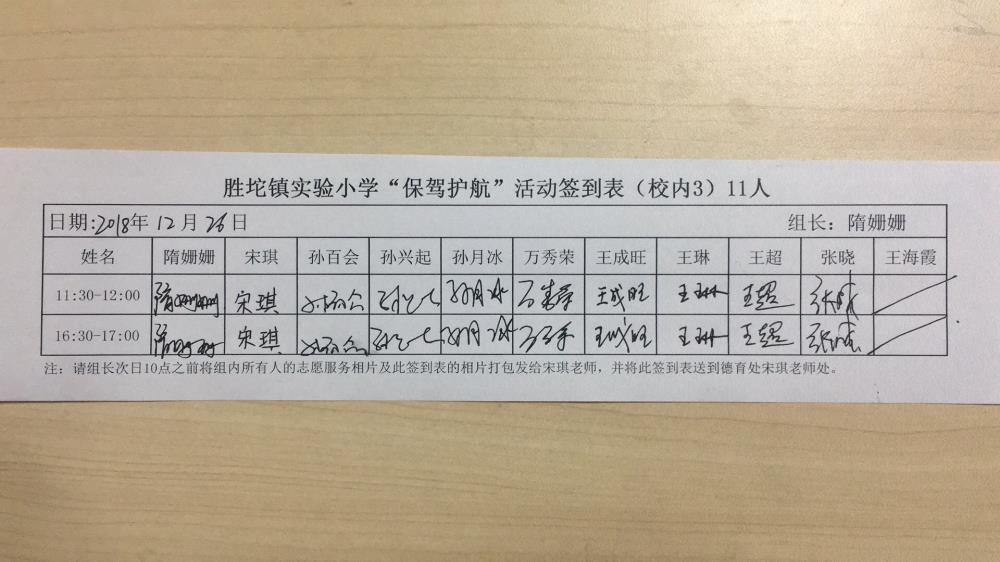 胜坨镇实验小学“保驾护航”活动签到表（校内3）11人
日期:2018年 12月 26日 组长：隋姗姗
姓名 隋姗姗 宋琪 孙百会 孙兴起 孙月冰 万秀荣 王成旺 王琳 王超 张晓 王海霞
11:30-12:00 隋姗姗 宋琪 孙百会 孙兴起 孙月冰 万秀荣 王成旺 王琳 王超 张晓
16:30-17:00 隋姗姗 宋琪 孙百会 孙兴起 孙月冰 万秀荣 王成旺 王琳 王超 张晓
注：请组长次日10点之前将组内所有人的志愿服务相片及此签到表的相片打包发给宋琪老师，并将此签到表送到德育处宋琪老师处。